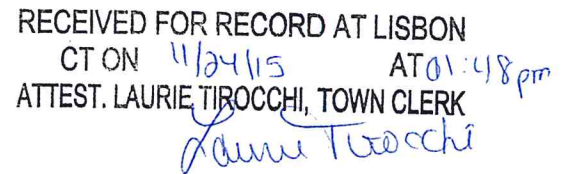 RECEIVED FOR RECORD AT LISBON
CT ON 11/24/15 AT 01:48 pm
ATTEST. LAURIE TIROCCHI, TOWN CLERK
Laurie Tirocchi